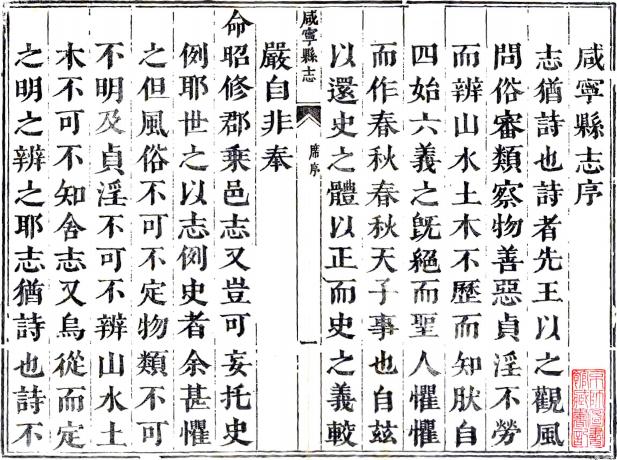 咸寧縣志序
志猶詩也詩者先王以之觀風
問俗審類察物善惡貞淫不勞
而辨山水土木不歷而知肰自
四始六義之旣絕而聖人懼懼
而作春秋春秋天子事也自茲
以還史之體以正而史之義較
嚴自非奉
咸寧縣志
席序
一
命昭修郡乘邑志又豈可妄托史
例耶世之以志例史者余甚懼
之但風俗不可不定物類不可
不明及貞淫不可不辨山水土
木不可不知舍志又烏從而定
之明之辨之耶志猶詩也詩不